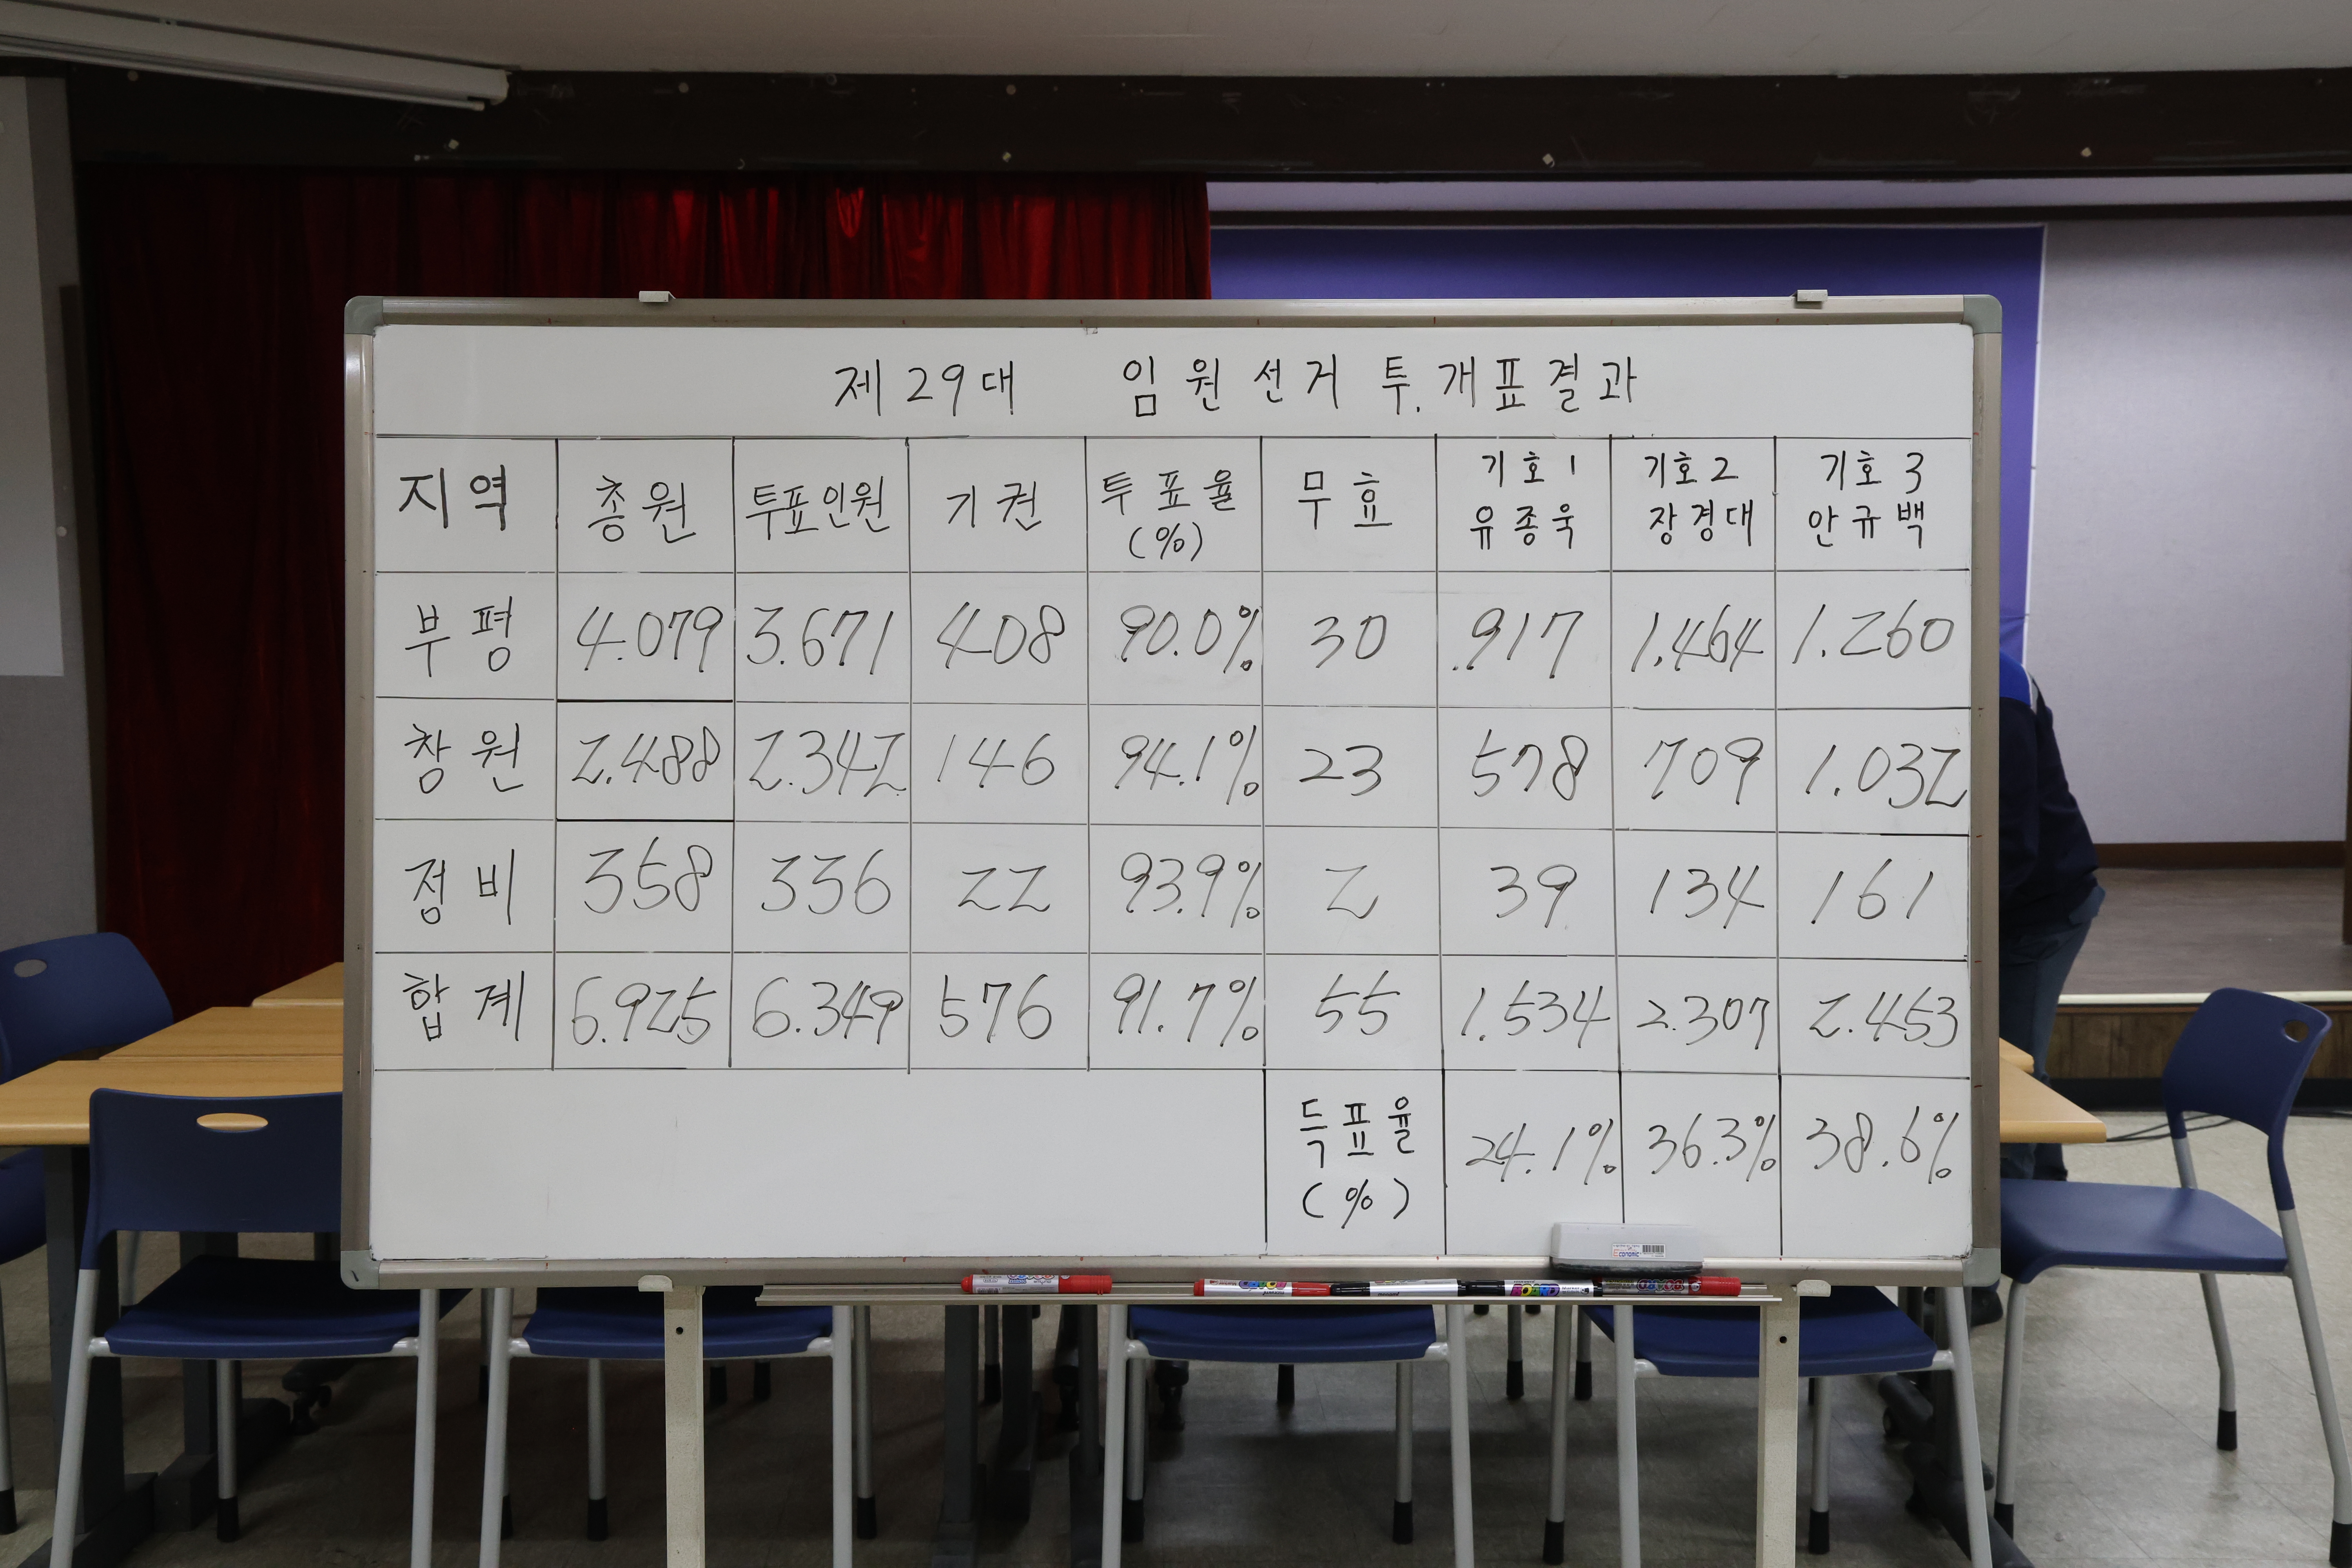 제29대 임원선거 투.개표결과
지역 총원 투표인원 기권 투표율(%) 무효 기호1 유종욱 기호2 장경대 기호3 안규백
부평 4.079 3.671 408 90.0% 30 .917 1.464 1.260
창원 2.488 2.342 146 94.1% 23 578 709 1.032
정비 358 336 22 93.9% 2 39 134 161
합계 6.925 6.349 576 91.7% 55 1.534 2.307 2.453
득표율(%) 24.1% 36.3% 38.6%
BOARD